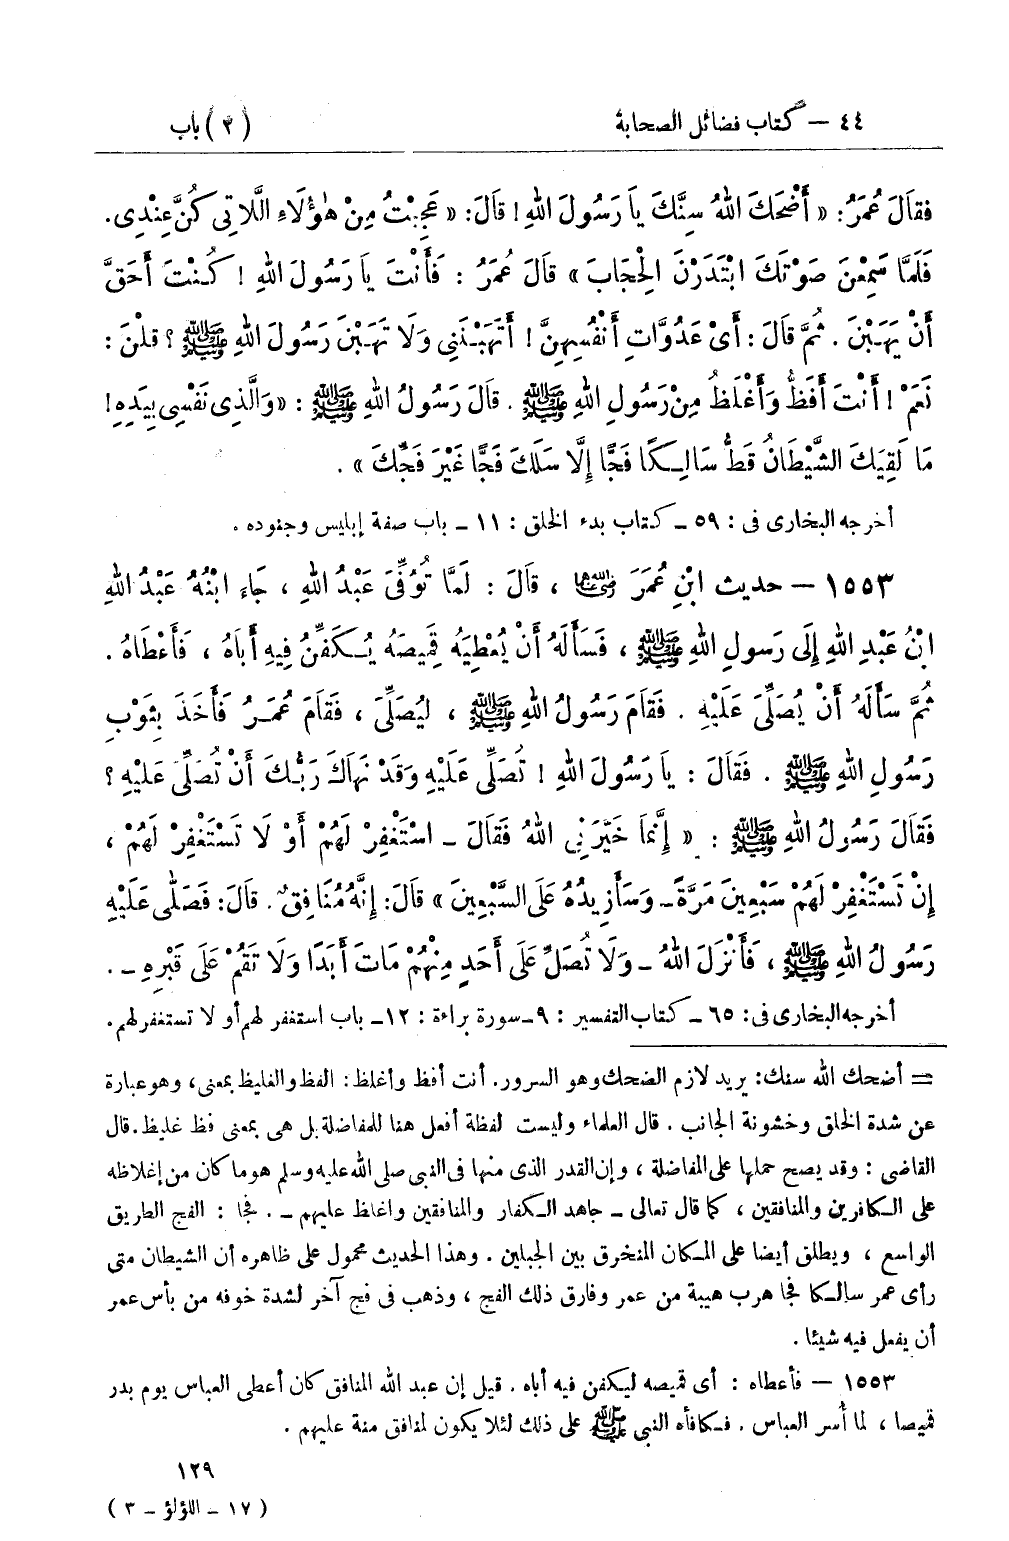 ٤٤ – كتاب فضائل الصحابة (٢) باب
فَقَالَ عُمَرُ: « أَضْحَكَ اللهُ سِنَّكَ يَا رَسُولَ اللهِ! قَالَ: « عَجِبْتُ مِنْ هٰؤُلَاءِ اللَّاتِى كُنَّ عِنْدِى.
فَلَمَّا سَمِعْنَ صَوْتَكَ ابْتَدَرْنَ الْحِجَابَ » قَالَ عُمَرُ : فَأَنْتَ يَا رَسُولَ اللهِ ! كُنْتَ أَحَقَّ
أَنْ يَهَبْنَ . ثُمَّ قَالَ : أَىْ عَدُوَّاتِ أَنْفُسِهِنَّ ! أَتَهَبْنَنِى وَلَا تَهَبْنَ رَسُولَ اللهِ ﷺ ؟ قلْنَ :
نَعَمْ ! أَنْتَ أَفَظُّ وَأَغْلَظُ مِنْ رَسُولِ اللهِ ﷺ . قَالَ رَسُولُ اللهِ ﷺ : « وَالَّذِى نَفْسِى بِيَدِهِ!
مَا لَقِيَكَ الشَّيْطَانُ قَطُّ سَالِكًا فَجًّا إِلَّا سَلَكَ فَجًّا غَيْرَ فَجِّكَ » .
أخرجه البخارى فى : ٥٩ ـ كتاب بدء الخلق : ١١ ـ باب صفة إبليس وجنوده .
١٥٥٣ – حديث ابْنِ عُمَرَ رضى الله عنهما ، قَالَ : لَمَّا تُوُفِّىَ عَبْدُ اللهِ ، جَاءَ ابْنُهُ عَبْدُ اللهِ
ابْنُ عَبْدِ اللهِ إِلَى رَسولِ اللهِ ﷺ ، فَسَأَلَهُ أَنْ يُعْطِيَهُ قَمِيصَهُ يُكَفِّنُ فِيهِ أَبَاهُ ، فَأَعْطَاهُ .
ثُمَّ سَأَلَهُ أَنْ يُصَلِّىَ عَلَيْهِ . فَقَامَ رَسُولُ اللهِ ﷺ ، لِيُصَلِّىَ ، فَقَامَ عُمَرُ فَأَخَذَ بِثَوْبِ
رَسُولِ اللهِ ﷺ . فَقَالَ : يَا رَسُولَ اللهِ ! تُصَلِّى عَلَيْهِ وَقَدْ نَهَاكَ رَبُّكَ أَنْ تُصَلِّىَ عَلَيْهِ ؟
فَقَالَ رَسُولُ اللهِ ﷺ : « إِنَّمَا خَيَّرَنِى اللهُ فَقَالَ ـ اسْتَغْفِرْ لَهُمْ أَوْ لَا تَسْتَغْفِرْ لَهُمْ ،
إِنْ تَسْتَغْفِرْ لَهُمْ سَبْعِينَ مَرَّةً ـ وَسَأَزِيدُهُ عَلَى السَّبْعِينَ » قَالَ: إِنَّهُ مُنَافِقٌ . قَالَ: فَصَلَّى عَلَيْهِ
رَسُولُ اللهِ ﷺ ، فَأَنْزَلَ اللهُ ـ وَلَا تُصَلِّ عَلَى أَحَدٍ مِنْهُمْ مَاتَ أَبَدًا وَلَا تَقُمْ عَلَى قَبْرِهِ ـ .
أخرجه البخارى فى: ٦٥ ـ كتاب التفسير : ٩ ـ سورة براءة : ١٢ ـ باب استغفر لهم أو لا تستغفر لهم.
= أضحك الله سنك: يريد لازم الضحك وهو السرور. أنت أفظ وأغلظ: الفظ والغليظ بمعنى، وهو عبارة
عن شدة الخلق وخشونة الجانب . قال العلماء وليست لفظة أفعل هنا للمفاضلة بل هى بمعنى فظ غليظ. قال
القاضى : وقد يصح حملها على المفاضلة ، وإن القدر الذى منها فى النبى صلى الله عليه وسلم هو ما كان من إغلاظه
على الكافرين والمنافقين ، كما قال تعالى ـ جاهد الكفار والمنافقين واغلظ عليهم ـ . فجا : الفج الطريق
الواسع ، ويطلق أيضا على المكان المنخرق بين الجبلين . وهذا الحديث محمول على ظاهره أن الشيطان متى
رأى عمر سالكا فجا هرب هيبة من عمر وفارق ذلك الفج ، وذهب فى فج آخر لشدة خوفه من بأس عمر
أن يفعل فيه شيئا .
١٥٥٣ – فأعطاه : أى قميصه ليكفن فيه أباه . قيل إن عبد الله المنافق كان أعطى العباس يوم بدر
قميصا ، لما أُسر العباس . فكافأه النبى ﷺ على ذلك لئلا يكون لمنافق منة عليهم .
١٢٩
( ١٧ ـ اللؤلؤ ـ ٣ )